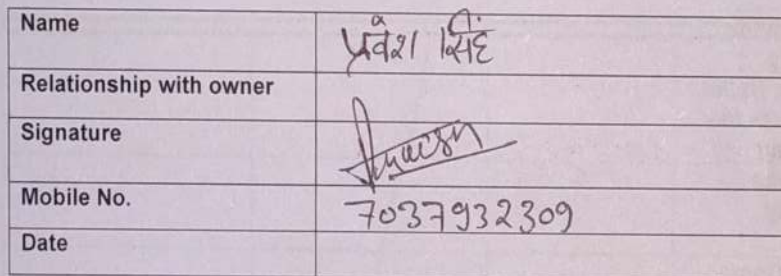 Name प्रवेश सिंह
Relationship with owner
Signature
Mobile No. 7037932309
Date